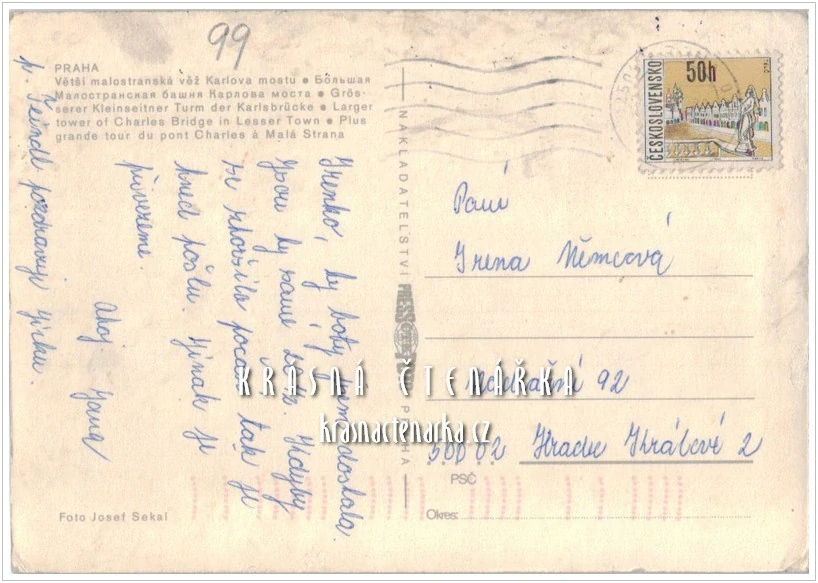 99
PRAHA
Větší malostranská věž Karlova mostu • Большая
Малостранская башня Карлова моста • Grös-
serer Kleinseitner Turm der Karlsbrücke • Larger
tower of Charles Bridge in Lesser Town • Plus
grande tour du pont Charles à Malá Strana
Irenko, ty boty jsem dostala.
Jsou ty samé žluté. Kdyby
se zhoršilo počasí, tak je
hned pošlu. Jinak je
přivezeme.
Ahoj Jana
p. Šeindl pozdravuje Jirku.
Foto Josef Sekal
NAKLADATELSTVÍ PRESSFOTO PRAHA
ČESKOSLOVENSKO
50h
Paní
Irena Němcová
Nádražní 92
500 02 Hradec Králové 2
PSČ
Okres:
KRÁSNÁ ČTENÁŘKA
krasnactenarka.cz